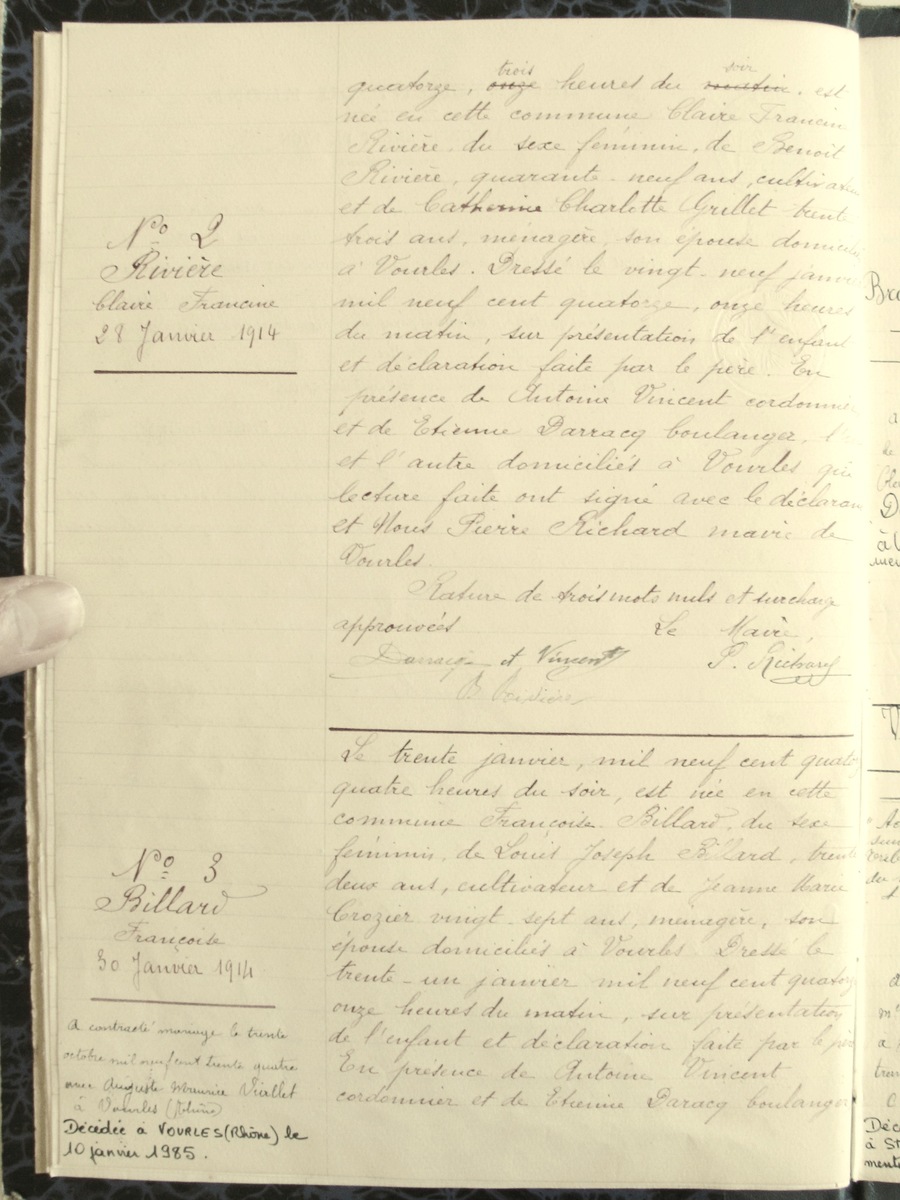 N° 2
Rivière
Claire Francine
28 Janvier 1914
trois soir
quatorze, onze heures du matin, est
née en cette commune Claire Francin
Rivière, du sexe féminin, de Benoit
Rivière, quarante-neuf ans, cultivateu
et de Catherine Charlotte Grillet trente
trois ans, ménagère, son épouse domicili
à Vourles. Dressé le vingt-neuf janvie
mil neuf cent quatorze, onze heures
du matin, sur présentation de l'enfant
et déclaration faite par le père. En
présence de Antoine Vincent cordonnie
et de Etienne Darracq boulanger, l'
et l'autre domiciliés à Vourles qui
lecture faite ont signé avec le déclaran
et Nous Pierre Richard maire de
Vourles.
Rature de trois mots nuls et surcharge
approuvées Le Maire,
Darracq et Vincent P. Richard
B Rivière
N° 3
Billard
Françoise
30 Janvier 1914
A contracté mariage le trente
octobre mil neuf cent trente quatre
avec Auguste Maurice Viallet
à Vourles (Rhône)
Décédée à VOURLES (Rhône) le
10 janvier 1985.
Le trente janvier, mil neuf cent quator
quatre heures du soir, est née en cette
commune Françoise Billard, du sexe
féminin, de Louis Joseph Billard, trente
deux ans, cultivateur et de Jeanne Marie
Crozier vingt-sept ans, menegère, son
épouse domiciliés à Vourles. Dressé le
trente-un janvier mil neuf cent quatorz
onze heures du matin, sur présentation
de l'enfant et déclaration faite par le père
En présence de Antoine Vincent
cordonnier et de Etienne Daracq boulanger